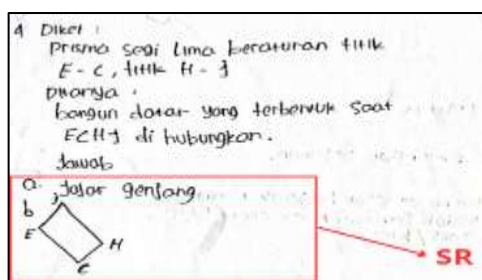 4 Diket :
Prisma segi lima beraturan titik
E - C, titik H - J
Ditanya :
bangun datar yang terbentuk saat
ECHJ di hubungkan.
Jawab
a. Jajar genjang
b J
E H
C
SR